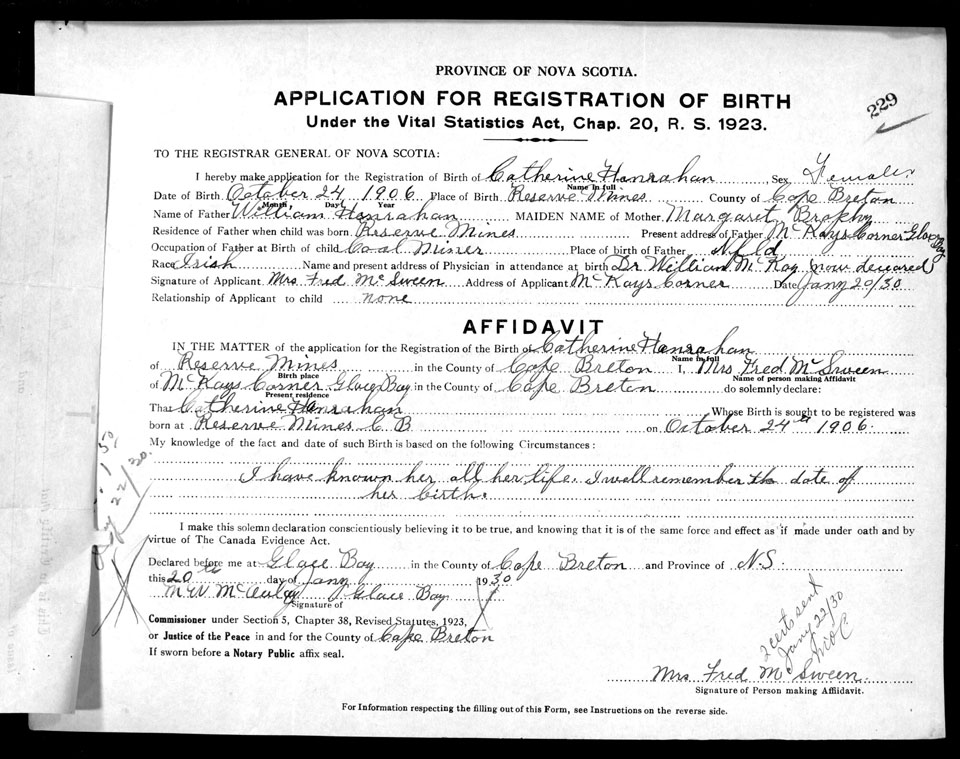 PROVINCE OF NOVA SCOTIA.
229
APPLICATION FOR REGISTRATION OF BIRTH
Under the Vital Statistics Act, Chap. 20, R. S. 1923.
TO THE REGISTRAR GENERAL OF NOVA SCOTIA:
I hereby make application for the Registration of Birth of Catherine Hanrahan Sex Female
Name in full
Date of Birth October 24 1906 Place of Birth Reserve Mines County of Cape Breton
Month Day Year
Name of Father William Hanrahan MAIDEN NAME of Mother Margaret Brophy
Residence of Father when child was born Reserve Mines Present address of Father McKays Corner Glace Bay
Occupation of Father at Birth of child Coal Miner Place of birth of Father Nfld
Race Irish Name and present address of Physician in attendance at birth Dr William McKay now deceased
Signature of Applicant Mrs Fred McSween Address of Applicant McKays Corner Date Jany 20/30
Relationship of Applicant to child none
AFFIDAVIT
IN THE MATTER of the application for the Registration of the Birth of Catherine Hanrahan
Name in full
of Reserve Mines in the County of Cape Breton I, Mrs Fred McSween
Birth place Name of person making Affidavit
of McKays Corner Glace Bay in the County of Cape Breton do solemnly declare:
Present residence
That Catherine Hanrahan Whose Birth is sought to be registered was
born at Reserve Mines C B on October 24th 1906.
My knowledge of the fact and date of such Birth is based on the following Circumstances:
I have known her all her life. I well remember the date of
her birth.
I make this solemn declaration conscientiously believing it to be true, and knowing that it is of the same force and effect as if made under oath and by
virtue of The Canada Evidence Act.
Declared before me at Glace Bay in the County of Cape Breton and Province of N.S.
this 20th day of Jany 1930
Glace Bay
Signature of
Commissioner under Section 5, Chapter 38, Revised Statutes, 1923,
or Justice of the Peace in and for the County of Cape Breton
If sworn before a Notary Public affix seal.
2 certs sent
Jany 22/30
Mrs Fred McSween
Signature of Person making Affidavit.
For Information respecting the filling out of this Form, see Instructions on the reverse side.
22/30.